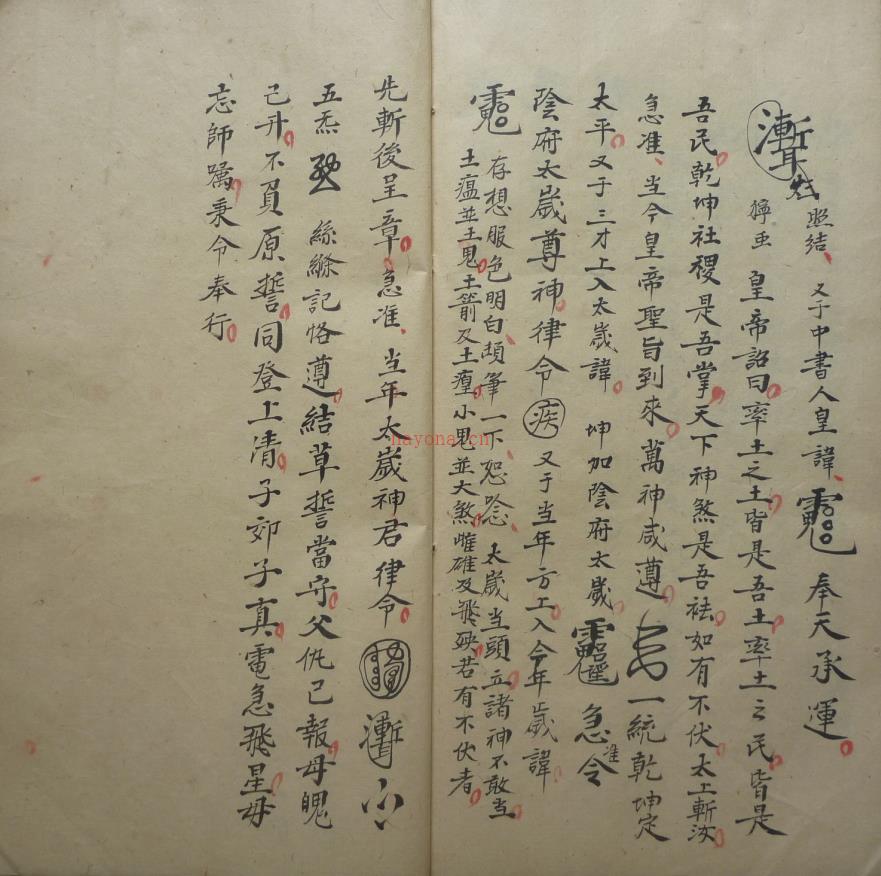 照結 又于中書人皇諱 奉天承運
皇帝詔曰率土之土皆是吾土率土之民皆是
吾民乾坤社稷是吾掌天下神煞是吾祛如有不伏太上斬汝
急准 当今皇帝聖旨到來萬神咸遵 一統乾坤定
太平又于三才上入太歲諱 坤加陰府太歲 急准令
陰府太歲尊神律令 疾 又于当年方上入今年歲諱
存想服色明白頓筆一下恕唸 太歲当頭立諸神不敢当
土瘟並土鬼土箭及土瘟小鬼並大煞雌雄及飛殃若有不伏者
先斬後呈章急准 当年太歲神君律令
五炁 絲絲記恪遵結草誓當守父仇已報母魄
已升不負原誓同登上清子卯子真電急飛星毋
忘師囑秉令奉行
hayona.cn